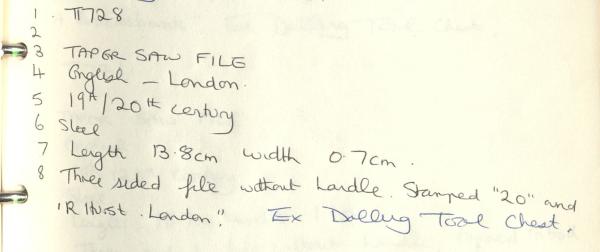 1 . TT728
2
3 TAPER SAW FILE
4 English - London.
5 19th/20th century
6 Steel
7 Length 13.8cm width 0.7cm.
8 Three sided file without handle. Stamped "20" and
"R Hurst. London". Ex Dalling Tool Chest.